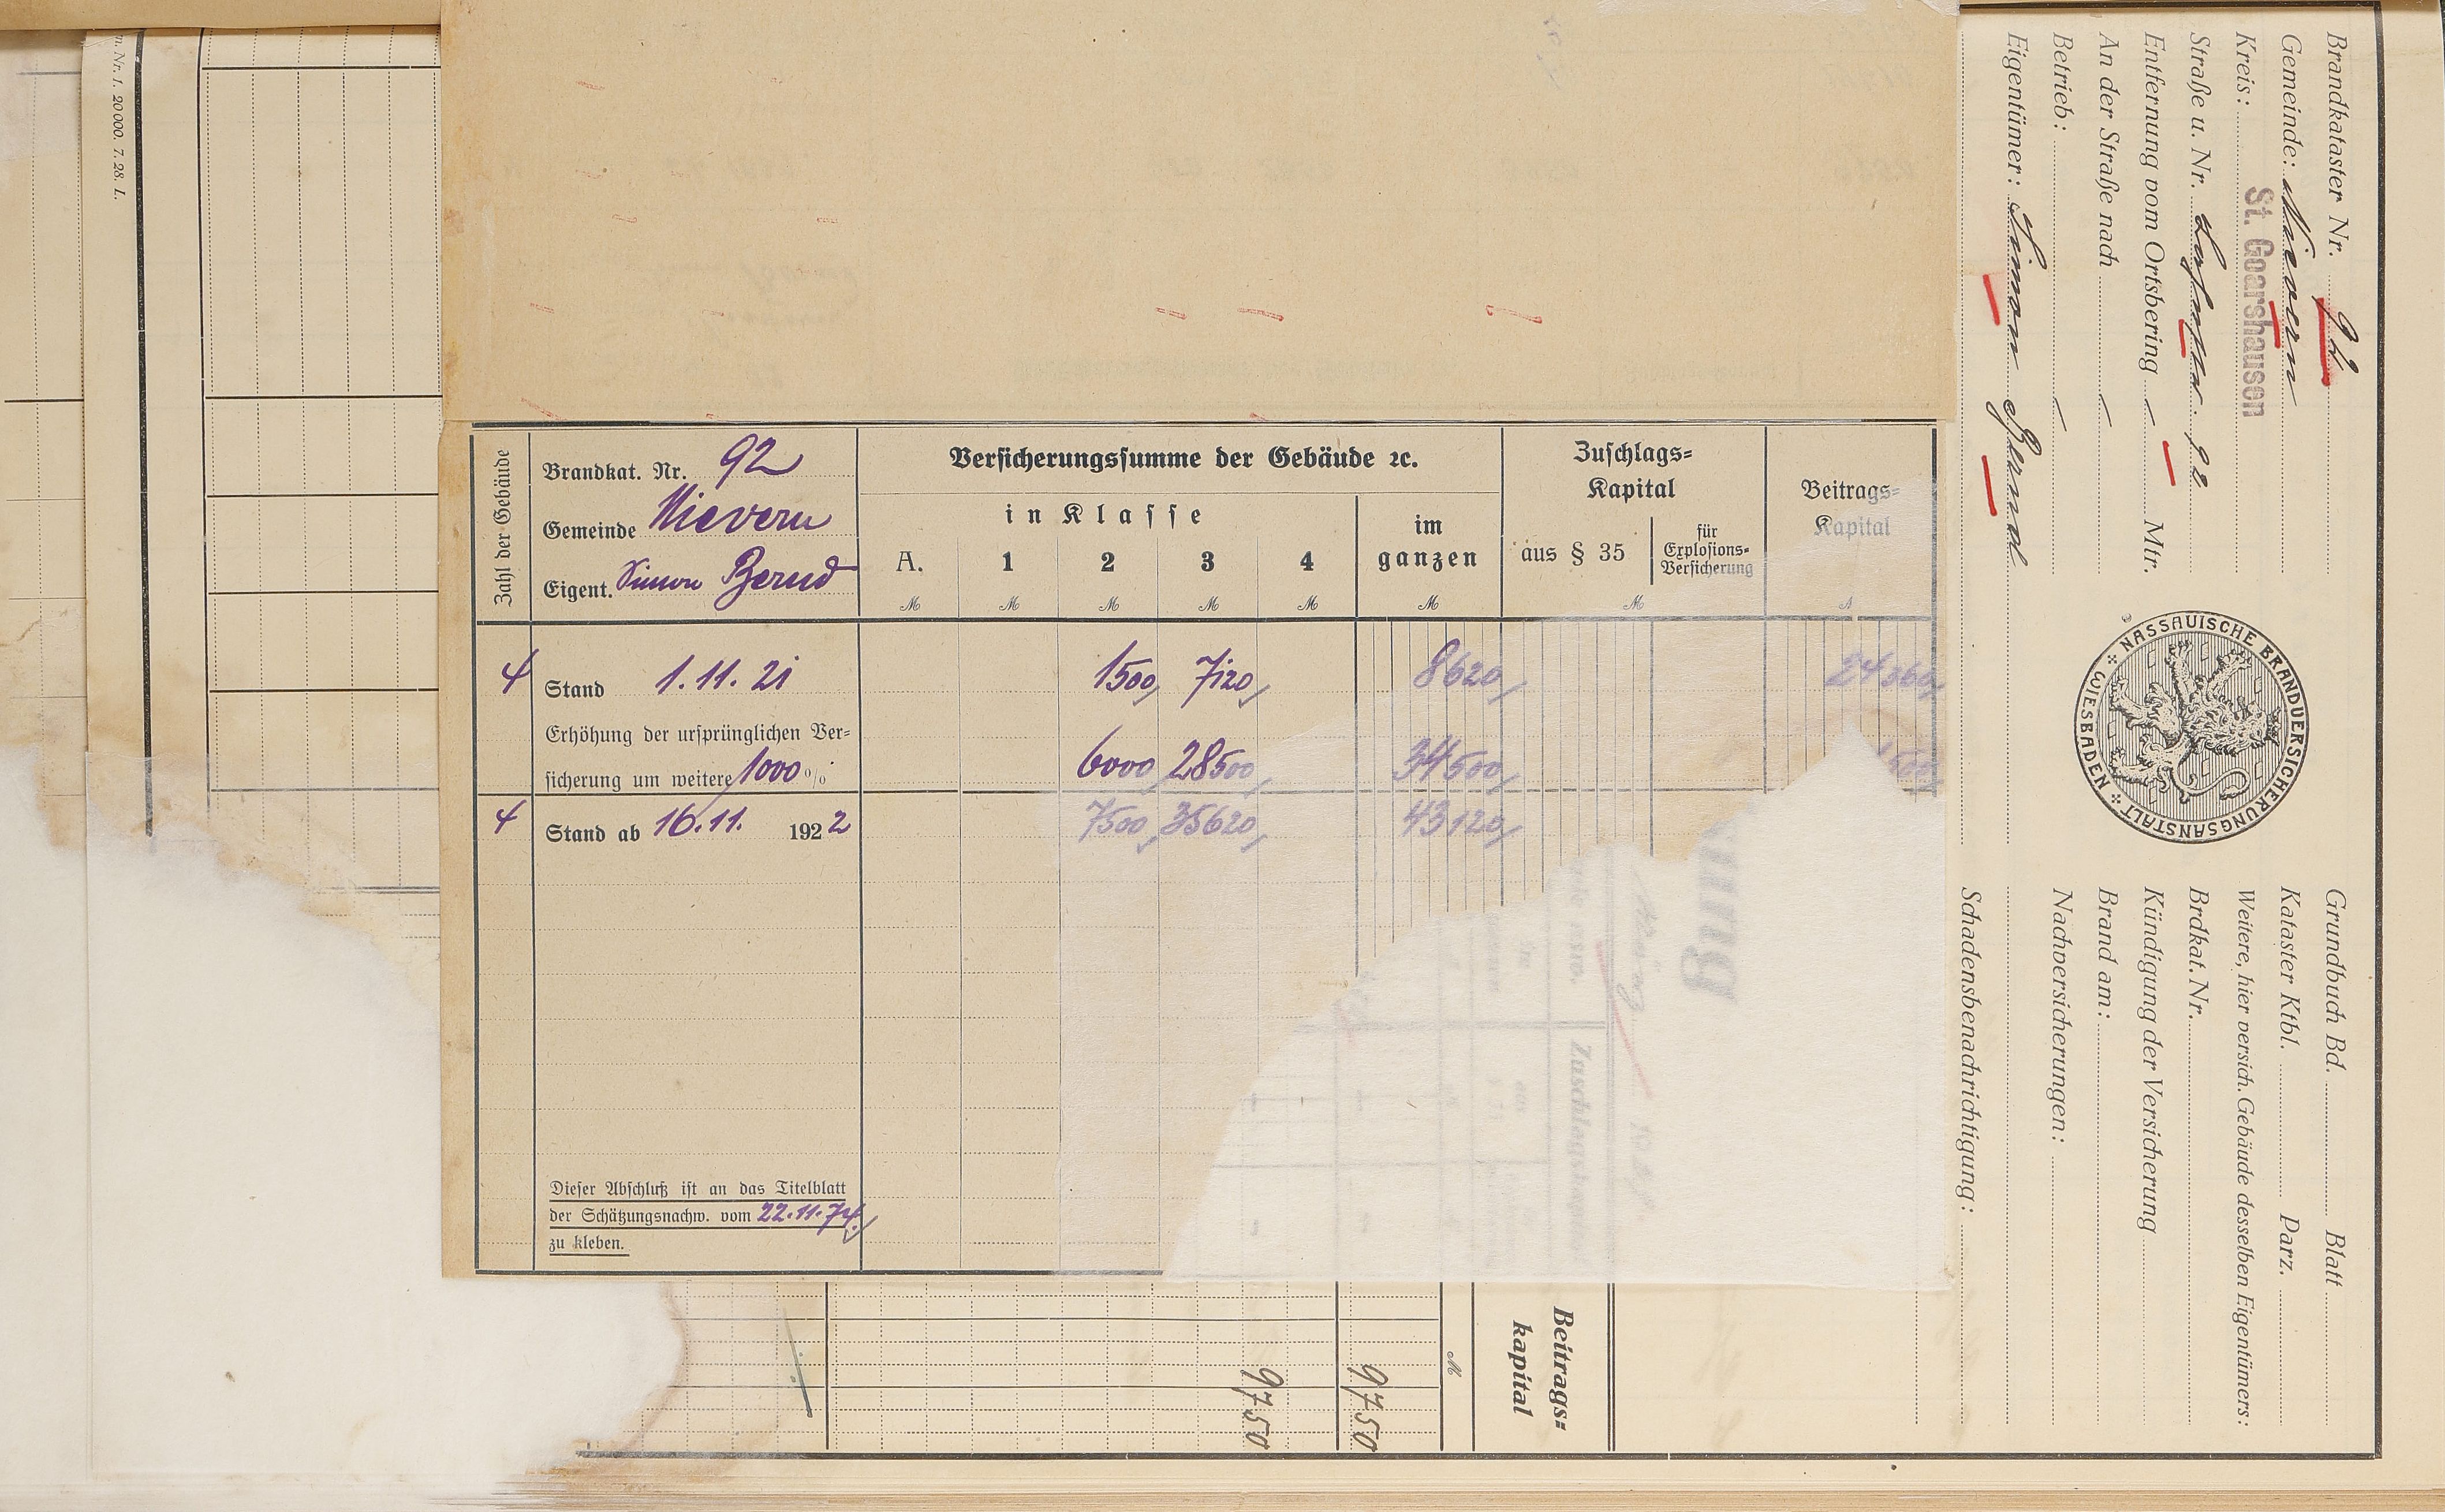 Zahl der Gebäude
Brandkat. Nr. 92
Gemeinde Nievern
Eigent. Simon Bernd
Versicherungssumme der Gebäude ꝛc.
in Klasse
A. 1 2 3 4
im
ganzen
M M M M M M
Zuschlags-
Kapital
aus § 35
für
Explosions-
Versicherung
M
Beitrags-
Kapital
4 Stand 1.11.21 1500, 7120, 8620,
Erhöhung der ursprünglichen Ver-
sicherung um weitere 1000 % 6000 28500, 34500,
4 Stand ab 16.11. 1922 7500, 35620, 43120,
Dieser Abschluß ist an das Titelblatt
der Schätzungsnachw. vom 22.11.74.
zu kleben.
Brandkataster Nr. 92
Gemeinde: Nievern
Kreis: St. Goarshausen
Straße u. Nr. 92
Entfernung vom Ortsbering Mtr.
An der Straße nach
Betrieb:
Eigentümer: Simon Bernd
NASSAUISCHE BRANDVERSICHERUNGSANSTALT
WIESBADEN
Grundbuch Bd. Blatt
Kataster Ktbl. Parz.
Weitere, hier versich. Gebäude desselben Eigentümers:
Brdkat. Nr.
Kündigung der Versicherung
Brand am:
Nachversicherungen:
Schadensbenachrichtigung:
Beitrags-
kapital
M
9750
9750
Nr. 1. 20000. 7. 28. L.